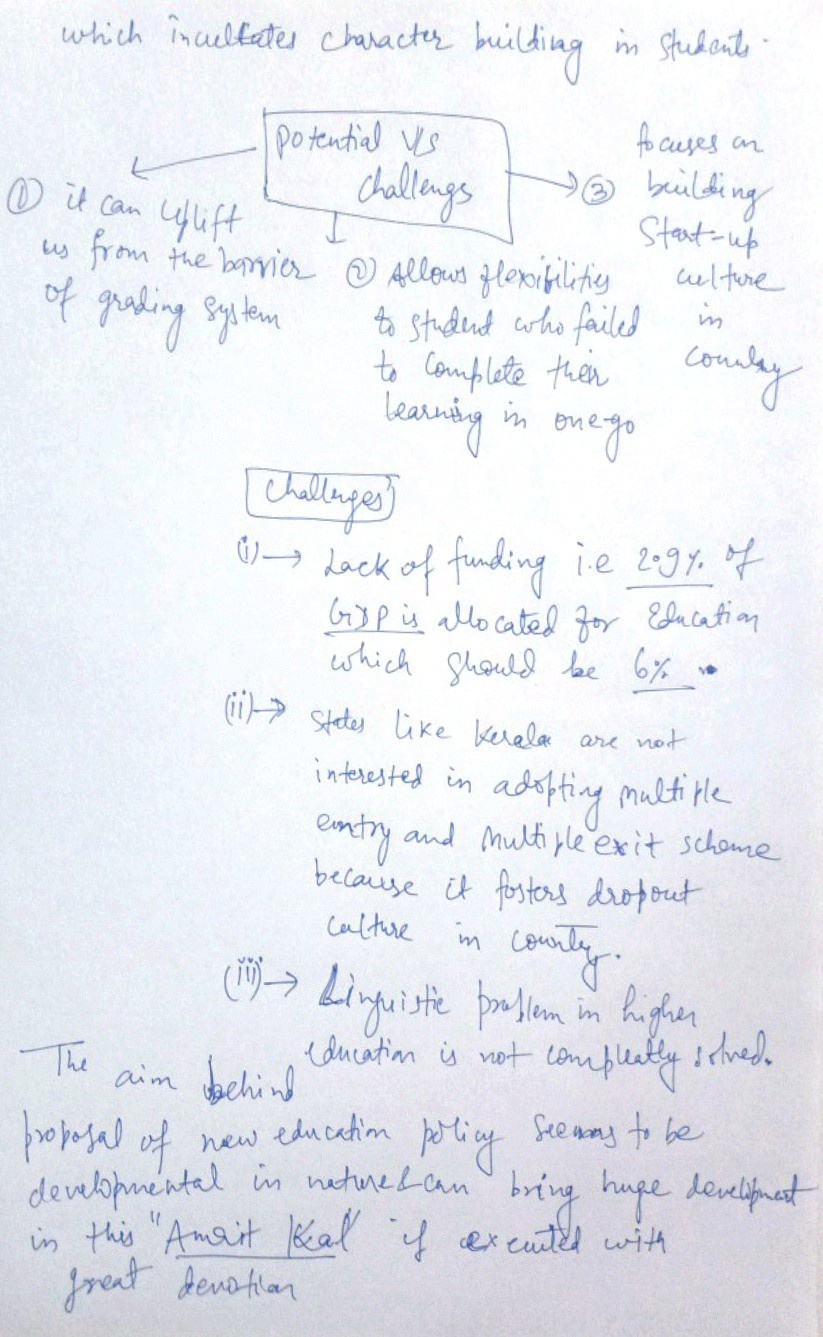 which inculcates character building in students.
Potential V/s
challengs
① it can uplift
us from the barrier
of grading system
② Allows flexibilities
to student who failed
to complete their
learning in one-go
③ focuses on
building
Start-up
culture
in
country
Challenges
(i) → Lack of funding i.e 2.9% of
GDP is allocated for Education
which should be 6%.
(ii) → States like Kerala are not
interested in adopting multiple
entry and multiple exit scheme
because it fosters dropout
culture in country.
(iii) → Linguistic problem in higher
education is not compleatly solved.
The aim behind
proposal of new education policy seems to be
developmental in nature & can bring huge development
in this "Amrit Kal" if executed with
great devotion